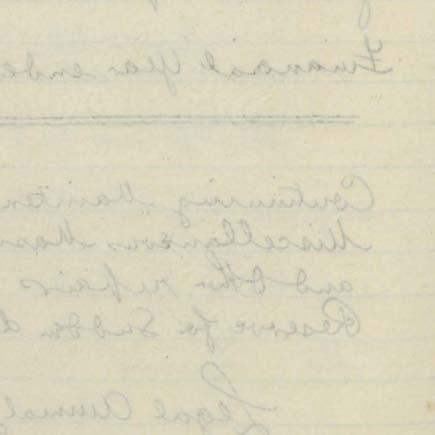 Financial Year ende
Continuing Mainten
Miscellaneous
and other repairs
Reserve for Sudden d
Legal Annual